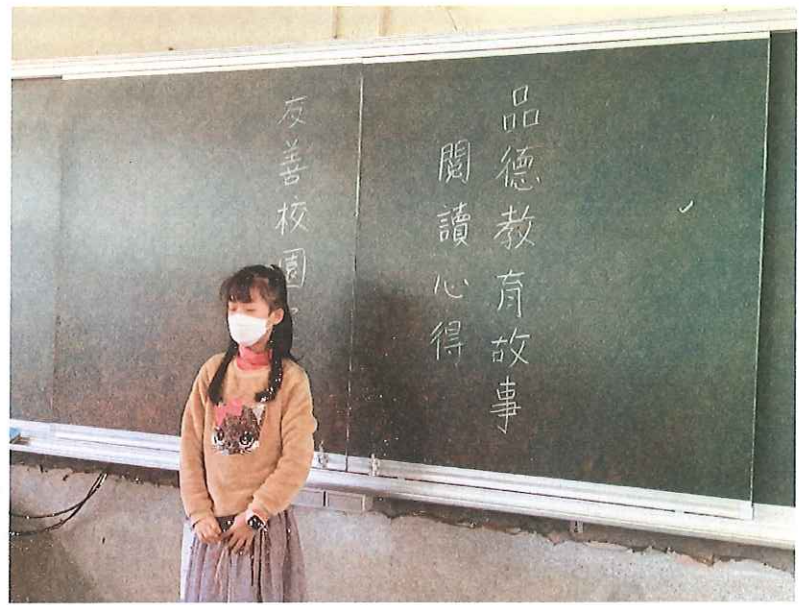 品德教育故事
閱讀心得
友善校園